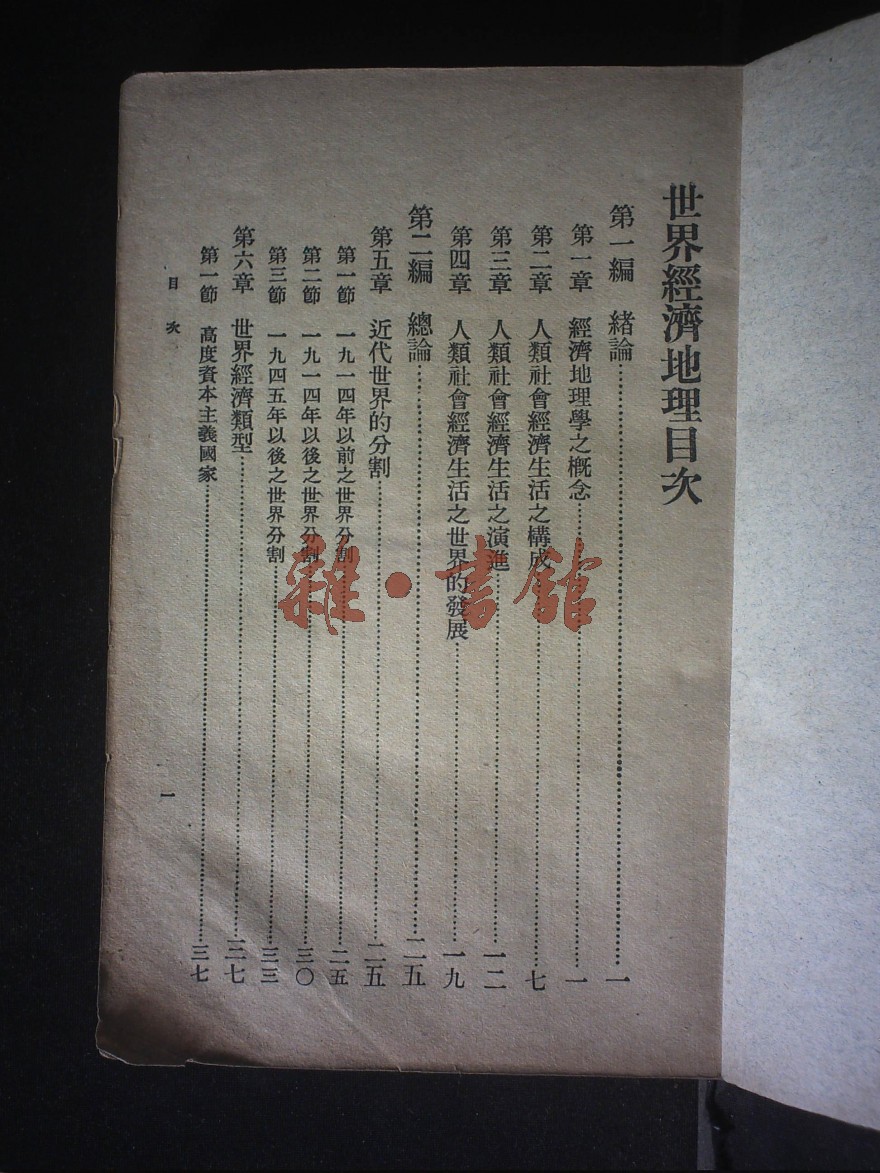 世界經濟地理目次
第一編 緒論……一
第一章 經濟地理學之概念……一
第二章 人類社會經濟生活之構成……七
第三章 人類社會經濟生活之演進……一二
第四章 人類社會經濟生活之世界的發展……一九
第二編 總論……二五
第五章 近代世界的分割……二五
第一節 一九一四年以前之世界分割……二五
第二節 一九一四年以後之世界分割……三〇
第三節 一九四五年以後之世界分割……三三
第六章 世界經濟類型……三七
第一節 高度資本主義國家……三七
目次 一
雜·書館